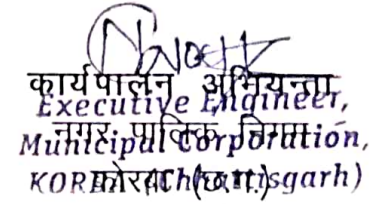 कार्यपालन अभियन्ता
Executive Engineer,
नगर पालिक निगम
Municipal Corporation,
कोरबा (छ.ग.)
KORBA (Chhattisgarh)